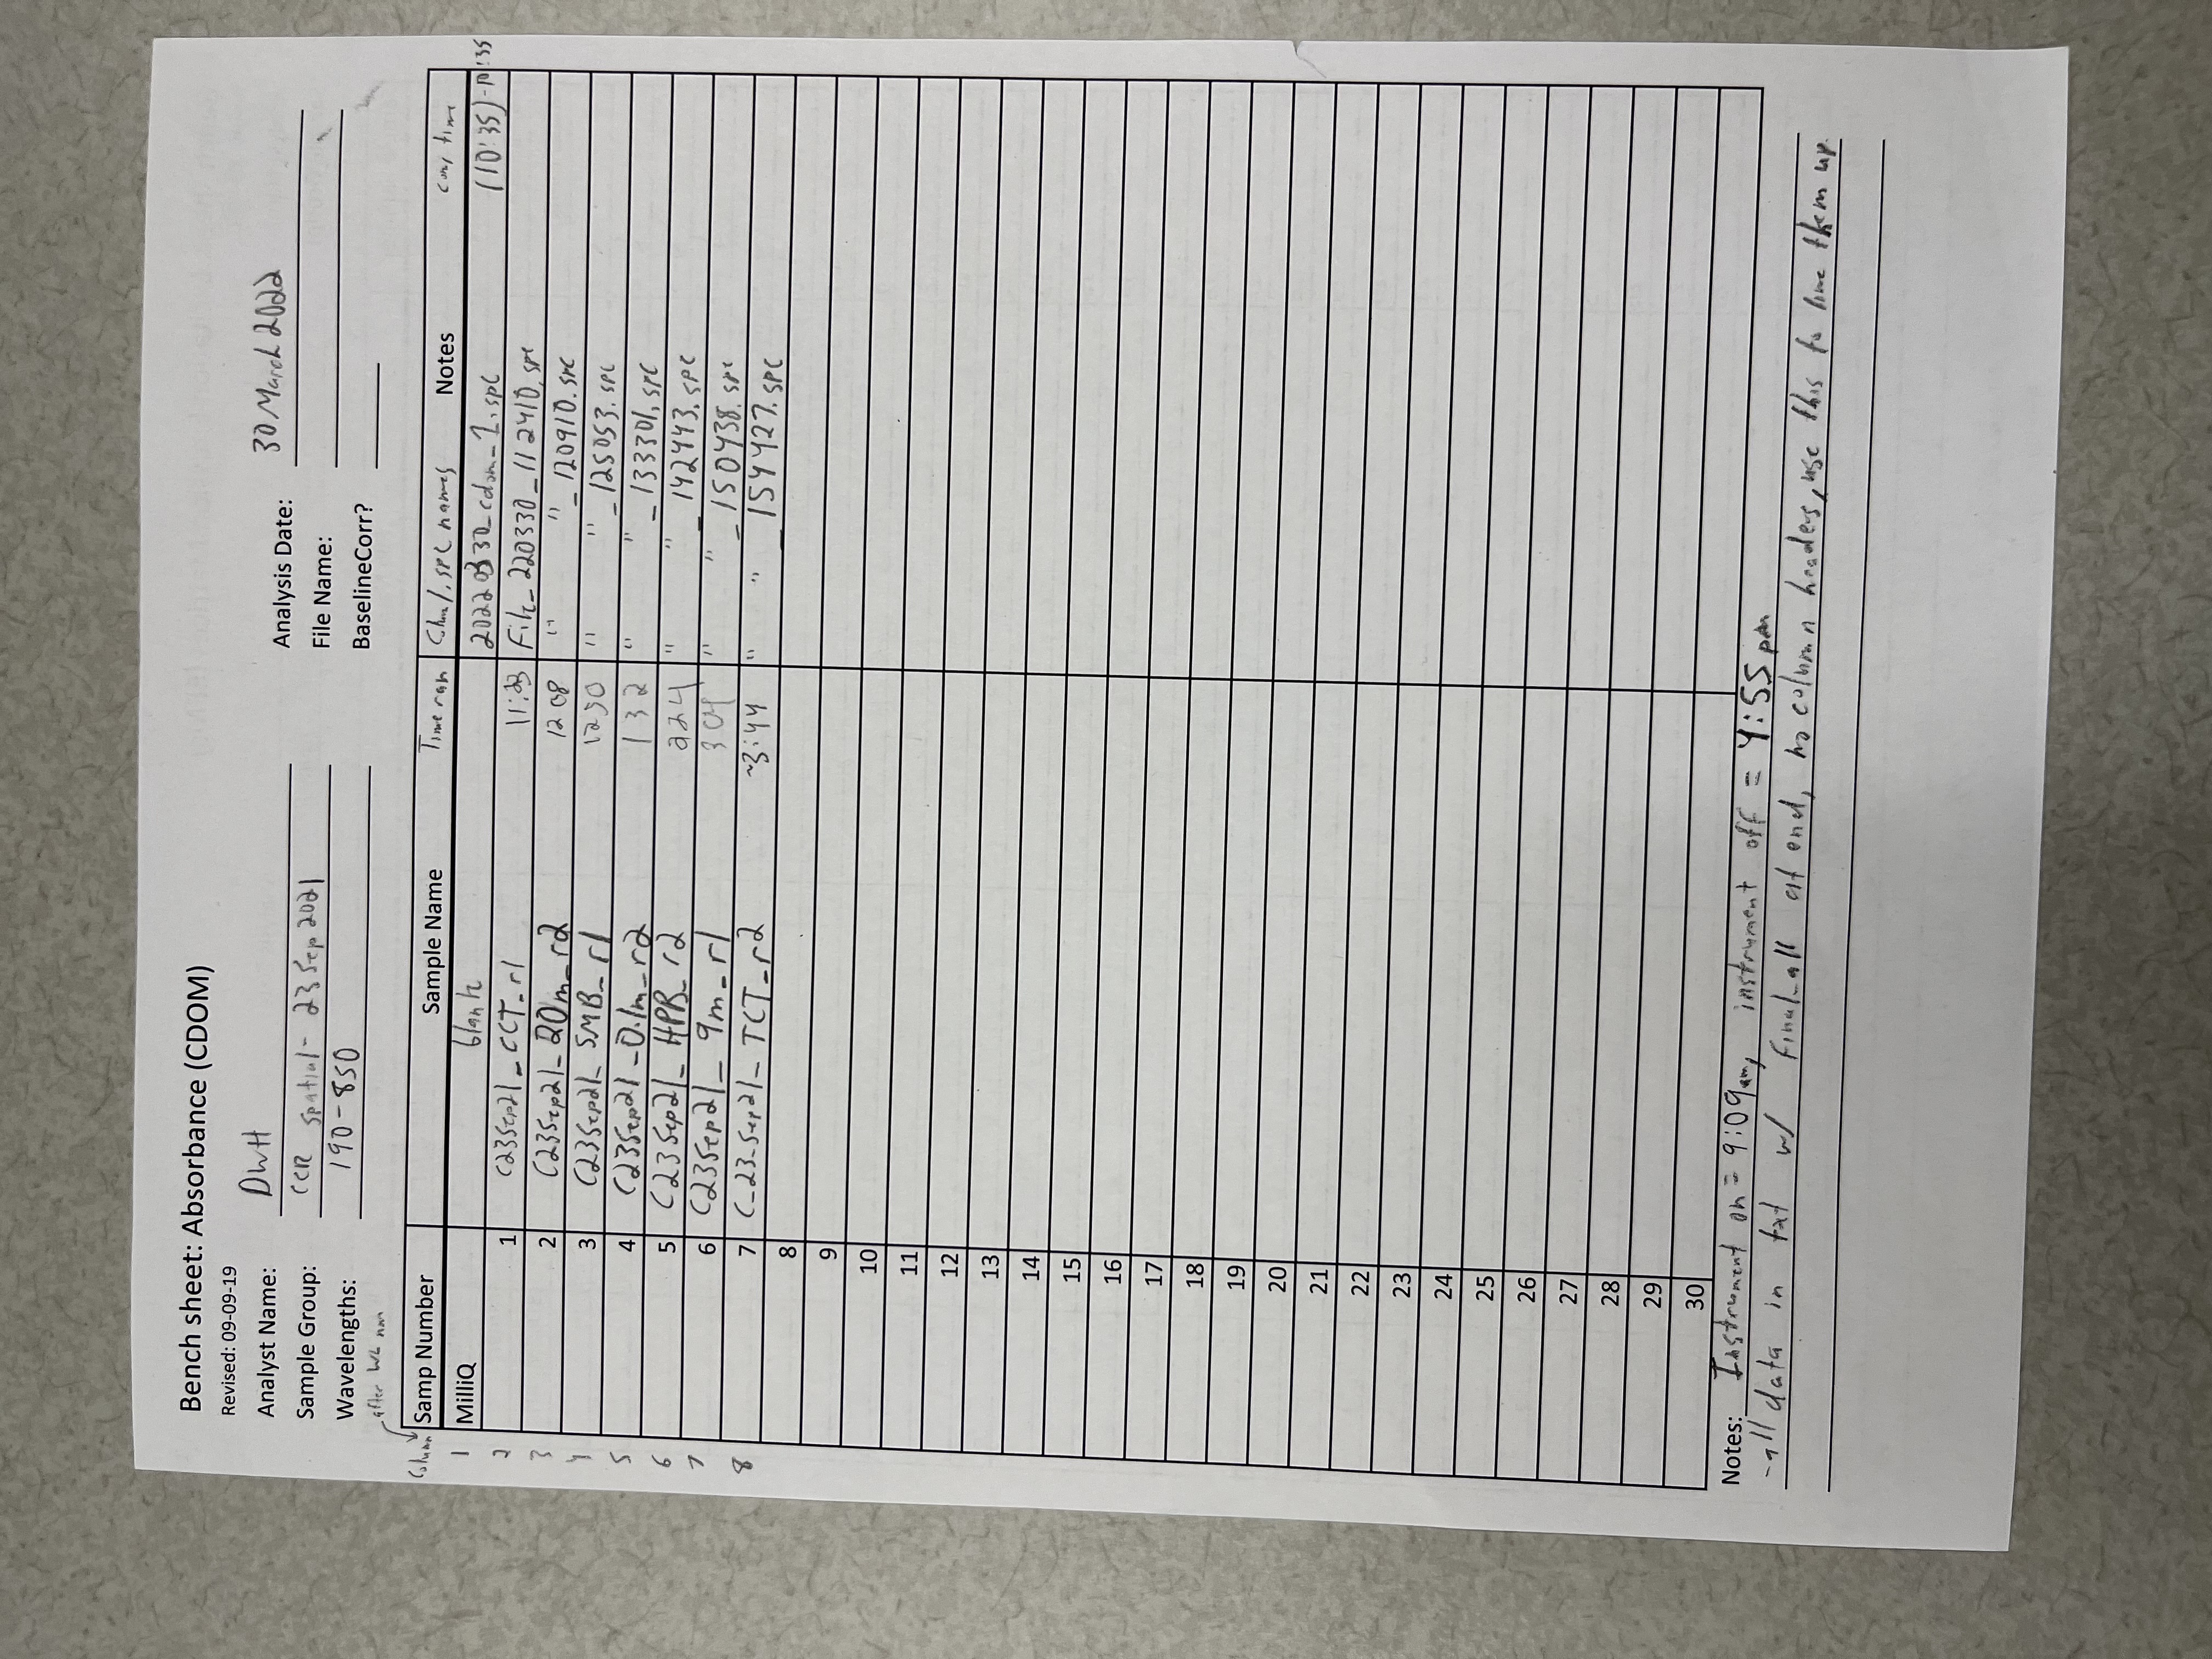 Bench sheet: Absorbance (CDOM)
Revised: 09-09-19
Analyst Name: DWH
Analysis Date: 30 March 2022
Sample Group: CCR spatial - 23 Sep 2021
File Name:
Wavelengths: 190-850
BaselineCorr?
after WL
Column Samp Number Sample Name Time ran .spc names Notes time
1 MilliQ blank 20220330_cdom_1.spc (10:35)-10:35
2 1 C23Sep21_CCT_r1 11:23 File_220330_112410.spc
3 2 C23Sep21_20m_r2 1208 " " _120910.spc
4 3 C23Sep21_SMB_r1 1250 " " _125053.spc
5 4 C23Sep21_0.1m_r2 132 " " _133301.spc
6 5 C23Sep21_HPB_r2 224 " " _142443.spc
7 6 C23Sep21_9m_r1 304 " " _150438.spc
8 7 C_23_Sep21_TCT_r2 ~3:44 " " _154427.spc
8
9
10
11
12
13
14
15
16
17
18
19
20
21
22
23
24
25
26
27
28
29
30
Notes: Instrument on = 9:09am, instrument off = 4:55 pm
-all data in txt w/ final_all at end, no column headers, use this to line them up.